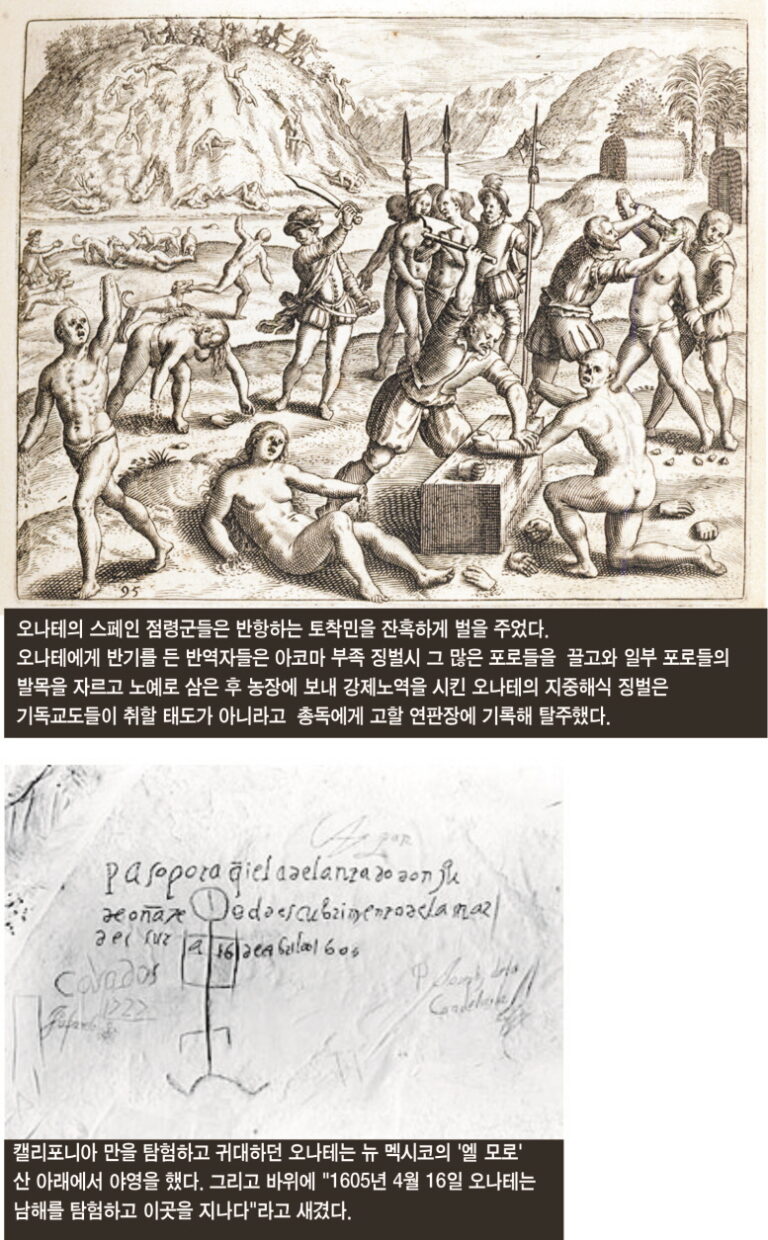 95
오나테의 스페인 점령군들은 반항하는 토착민을 잔혹하게 벌을 주었다.
오나테에게 반기를 든 반역자들은 아코마 부족 징벌시 그 많은 포로들을 끌고와 일부 포로들의
발목을 자르고 노예로 삼은 후 농장에 보내 강제노역을 시킨 오나테의 지중해식 징벌은
기독교도들이 취할 태도가 아니라고 총독에게 고할 연판장에 기록해 탈주했다.
pasopora q̄iel adelantado don Ju
de oñate
descubrimento de la mar
del sur a 16 de abril 1605
캘리포니아 만을 탐험하고 귀대하던 오나테는 뉴 멕시코의 '엘 모로'
산 아래에서 야영을 했다. 그리고 바위에 "1605년 4월 16일 오나테는
남해를 탐험하고 이곳을 지나다"라고 새겼다.